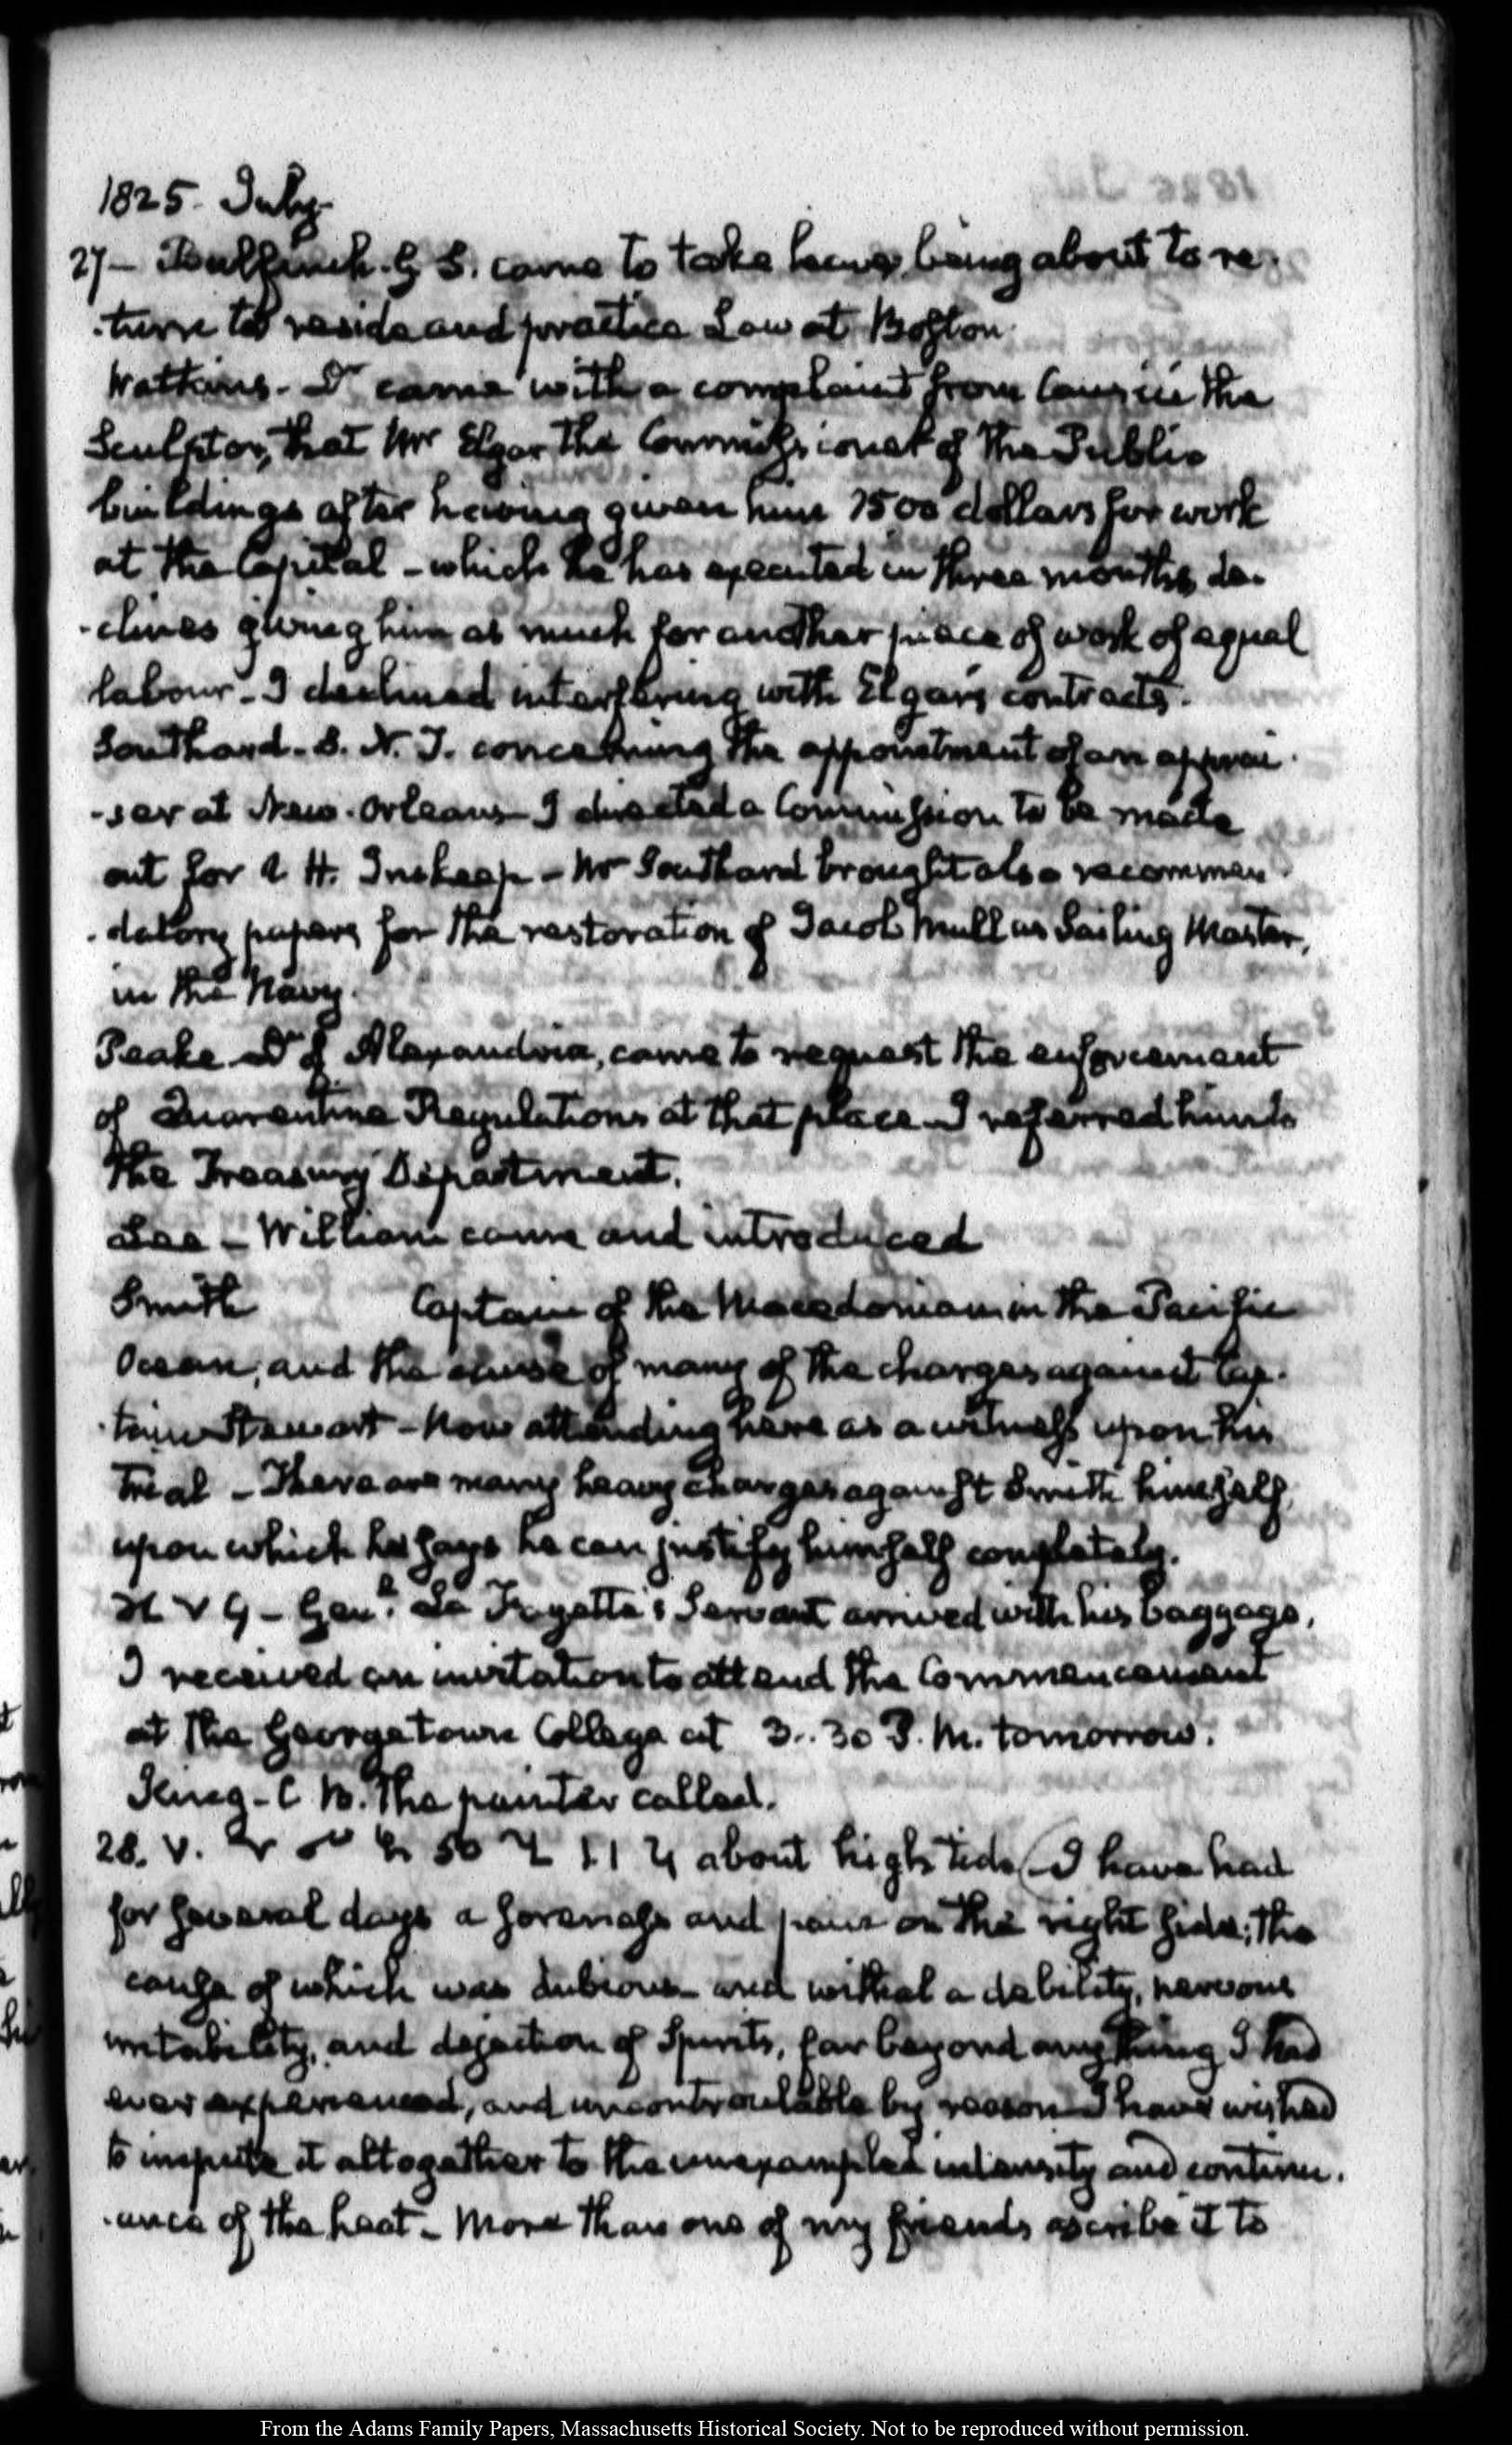 1825. July.
27— Bulfinch. G S. came to take leave, being about to re-
-turn to reside and practice Law at Boston.
Watkins. Dr came with a complaint from Causici the
Sculptor, that Mr Elgar the Commissioner of the Public
buildings after having given him 1500 dollars for work
at the Capital – which he has executed in three months, de-
-clines giving him as much for another piece of work of equal
labour – I declined interfering with Elgar's contracts.
Southard. S. N. J. concerning the appointment of an apprai-
-ser at New-Orleans – I directed a Commission to be made
out for H. Inskeep – Mr Southard brought also recommen-
-datory papers for the restoration of Jacob Mull as Sailing Master,
in the Navy.
Peake Dr of Alexandria, came to request the enforcement
of Quarentine Regulations at that place – I referred him to
the Treasury Department.
Lee – William came and introduced
Smith Captain of the Macedonian in the Pacific
Ocean, and the cause of many of the charges against Cap-
-tain Stewart – Now attending here as a witness upon his
trial – There are many heavy charges against Smith himself,
upon which he says he can justify himself completely.
Genl. La Fayette's Servant arrived with his baggage.
I received an invitation to attend the Commencement
at the Georgetown College at 3..30 P. M. tomorrow.
King – C B. The painter called.
28. V. about high tide – I have had
for several days a soreness and pain on the right side; the
cause of which was dubious – and withal a debility, nervous
irritability, and dejection of Spirits, far beyond any thing I had
ever experienced, and uncontroulable by reason – I have wished
to impute it altogether to the unexampled intensity and continu-
-ance of the heat – More than one of my friends ascribe it to
From the Adams Family Papers, Massachusetts Historical Society. Not to be reproduced without permission.